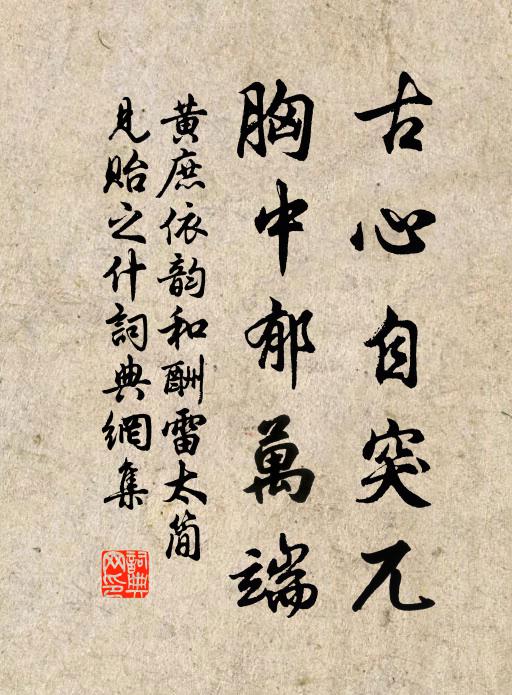 古心自突兀
胸中郁萬端
黃庶依韵和酬雷太簡
見貽之什詞典網集
詞典網印